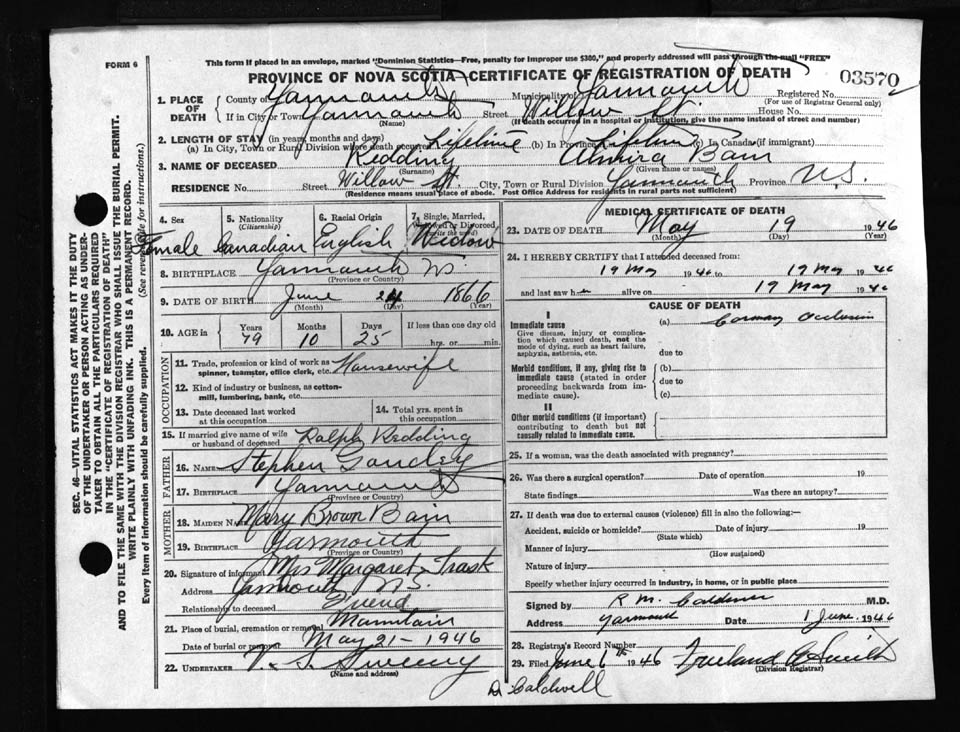 This form if placed in an envelope, marked "Dominion Statistics—Free, penalty for improper use $300," and properly addressed will pass through the mail "FREE"
FORM 6
PROVINCE OF NOVA SCOTIA—CERTIFICATE OF REGISTRATION OF DEATH
03570
1. PLACE OF DEATH
County of Yarmouth Municipality of Yarmouth Registered No.
(For use of Registrar General only)
If in City or Town Yarmouth Street Willow St. House No.
(Name) (If death occurred in a hospital or institution, give the name instead of street and number)
2. LENGTH OF STAY (in years, months and days)
(a) In City, Town or Rural Division where death occurred Lifetime (b) In Province Lifetime (c) In Canada (if immigrant)
3. NAME OF DECEASED Redding Almira Bain
(Surname) (Given name or names)
RESIDENCE No. Street Willow St. City, Town or Rural Division Yarmouth Province N.S.
(Residence means usual place of abode. Post Office Address for residents in rural parts not sufficient)
4. Sex
Female
5. Nationality
(Citizenship)
Canadian
6. Racial Origin
English
7. Single, Married, Widowed or Divorced
(Write the word)
Widow
8. BIRTHPLACE Yarmouth N.S.
(Province or Country)
9. DATE OF BIRTH June 24 1866
(Month) (Day) (Year)
10. AGE in
Years Months Days If less than one day old
79 10 25 hrs. or min.
OCCUPATION
11. Trade, profession or kind of work as spinner, teamster, office clerk, etc. Housewife
12. Kind of industry or business, as cotton-mill, lumbering, bank, etc.
13. Date deceased last worked at this occupation
14. Total yrs. spent in this occupation
15. If married give name of wife or husband of deceased Ralph Redding
FATHER
16. NAME Stephen Goudey
17. BIRTHPLACE Yarmouth
(Province or Country)
MOTHER
18. MAIDEN NAME Mary Brown Bain
19. BIRTHPLACE Yarmouth
(Province or Country)
20. Signature of informant Mrs Margaret Trask
Address Yarmouth N.S.
Relationship to deceased Friend
21. Place of burial, cremation or removal Mountain
Date of burial or removal May 21 - 1946
22. UNDERTAKER V. S. Sweeny
(Name and address)
MEDICAL CERTIFICATE OF DEATH
23. DATE OF DEATH May 19 1946
(Month) (Day) (Year)
24. I HEREBY CERTIFY that I attended deceased from:
19 May 1946 to 19 May 1946
and last saw her alive on 19 May 1946
CAUSE OF DEATH
I
Immediate cause
Give disease, injury or complication which caused death, not the mode of dying, such as heart failure, asphyxia, asthenia, etc.
(a) Coronary Occlusion
due to
Morbid conditions, if any, giving rise to immediate cause (stated in order proceeding backwards from immediate cause).
(b)
due to
(c)
II
Other morbid conditions (if important) contributing to death but not causally related to immediate cause.
25. If a woman, was the death associated with pregnancy?
26. Was there a surgical operation? Date of operation 19
State findings Was there an autopsy?
27. If death was due to external causes (violence) fill in also the following:—
Accident, suicide or homicide? Date of injury 19
(State which)
Manner of injury
(How sustained)
Nature of injury
Specify whether injury occurred in industry, in home, or in public place
Signed by R M. Caldwell M.D.
Address Yarmouth Date 1 June 1946
28. Registrar's Record Number
29. Filed June 6th 1946
(Division Registrar)
D Caldwell
SEC. 46—VITAL STATISTICS ACT MAKES IT THE DUTY
OF THE UNDERTAKER OR PERSON ACTING AS UNDER-
TAKER TO OBTAIN ALL THE PARTICULARS REQUIRED
IN THE "CERTIFICATE OF REGISTRATION OF DEATH"
AND TO FILE THE SAME WITH THE DIVISION REGISTRAR WHO SHALL ISSUE THE BURIAL PERMIT.
WRITE PLAINLY WITH UNFADING INK. THIS IS A PERMANENT RECORD.
Every item of information should be carefully supplied. (See reverse side for instructions.)